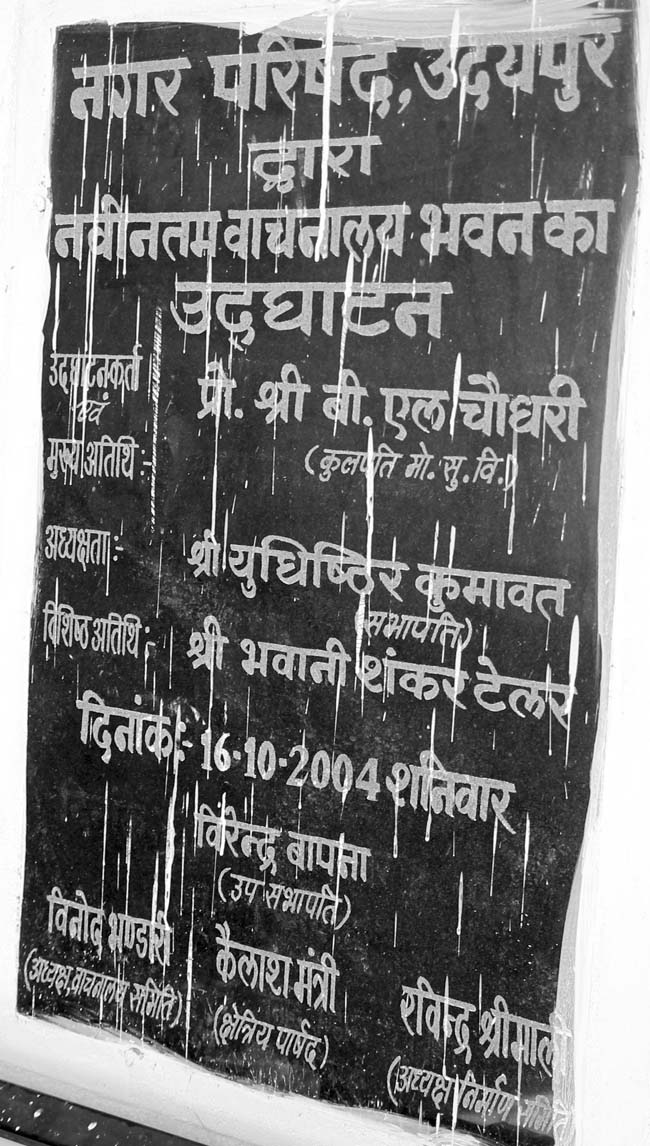 नगर परिषद, उदयपुर
द्वारा
नवीनतम वाचनालय भवन का
उद्घाटन
उद्घाटनकर्ता
एवं
मुख्य अतिथि :-
प्रो. श्री बी. एल चौधरी
(कुलपति मो. सु. वि.)
अध्यक्षता :- श्री युधिष्ठिर कुमावत
(सभापति)
विशिष्ठ अतिथि :- श्री भवानी शंकर टेलर
दिनांक :- 16-10-2004 शनिवार
विरेन्द्र बापना
(उप सभापति)
विनोद भण्डारी
(अध्यक्ष, वाचनालय समिति)
कैलाश मंत्री
(क्षेत्रिय पार्षद)
रविन्द्र श्रीमाली
(अध्यक्ष निर्माण समिति)